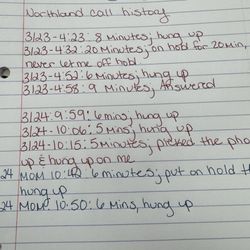 Northland call history
3/23-4:23: 8 Minutes; hung up
3/23-4:32: 20 Minutes; on hold for 20 min,
never let me off hold
3/23-4:52: 6 Minutes; hung up
3/23-4:58: 9 Minutes, Answered
3/24: 9:59: 6 mins; hung up
3/24-10:06: 5 mins, hung up
3/24-10:15: 5 Minutes, picked the pho
up & hung up on me
24 MOM 10:42: 6 minutes; put on hold th
hung up
24 MOM: 10:50: 6 Mins, hung up